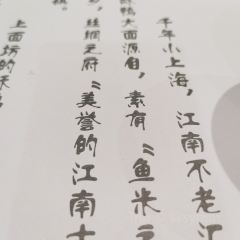 千年小上海，江南不老江
鸭大面源自，素有〝鱼米之
乡，丝绸之府〞美誉的江南
上面坊的味